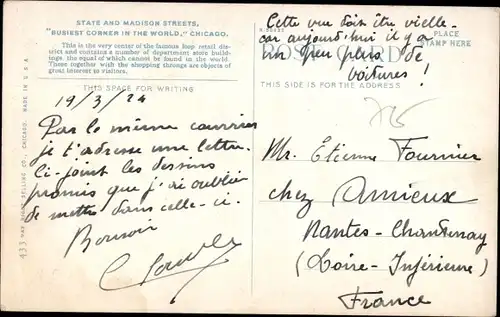 STATE AND MADISON STREETS,
"BUSIEST CORNER IN THE WORLD," CHICAGO.
This is the very center of the famous loop retail dis-
trict and contains a number of department store build-
ings, the equal of which cannot be found in the world.
These together with the shopping throngs are objects of
great interest to visitors.
THIS SPACE FOR WRITING
19/3/24
Par le même courrier
je t'adresse une lettre.
Ci-joint les dessins
promis que j'ai oublié
de mettre dans celle-ci.
Bonsoir
433 SELLING CO., CHICAGO. MADE IN U.S.A.
Cette vue doit être vieille
car aujourd'hui il y a
un peu plus de
voitures!
POST CARD
PLACE
STAMP HERE
THIS SIDE IS FOR THE ADDRESS
Mr. Etienne Fournier
chez Amieux
Nantes-Chantenay
(Loire-Inférieure)
France